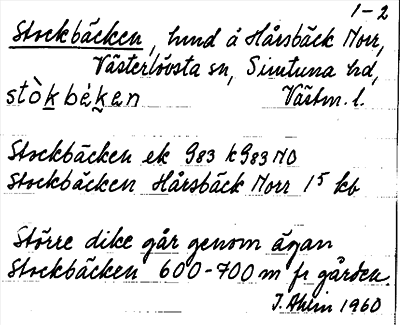 1-2
Stockbäcken, hmd å Hårsbäck Norr,
Västerlövsta sn, Simtuna hd,
stòkbéken Västm. l.
Stockbäcken ek 983 k 983 NO
Stockbäcken Hårsbäck Norr 1⁵ kb
Större dike går genom ägan
Stockbäcken 600-700 m fr gården.
1960